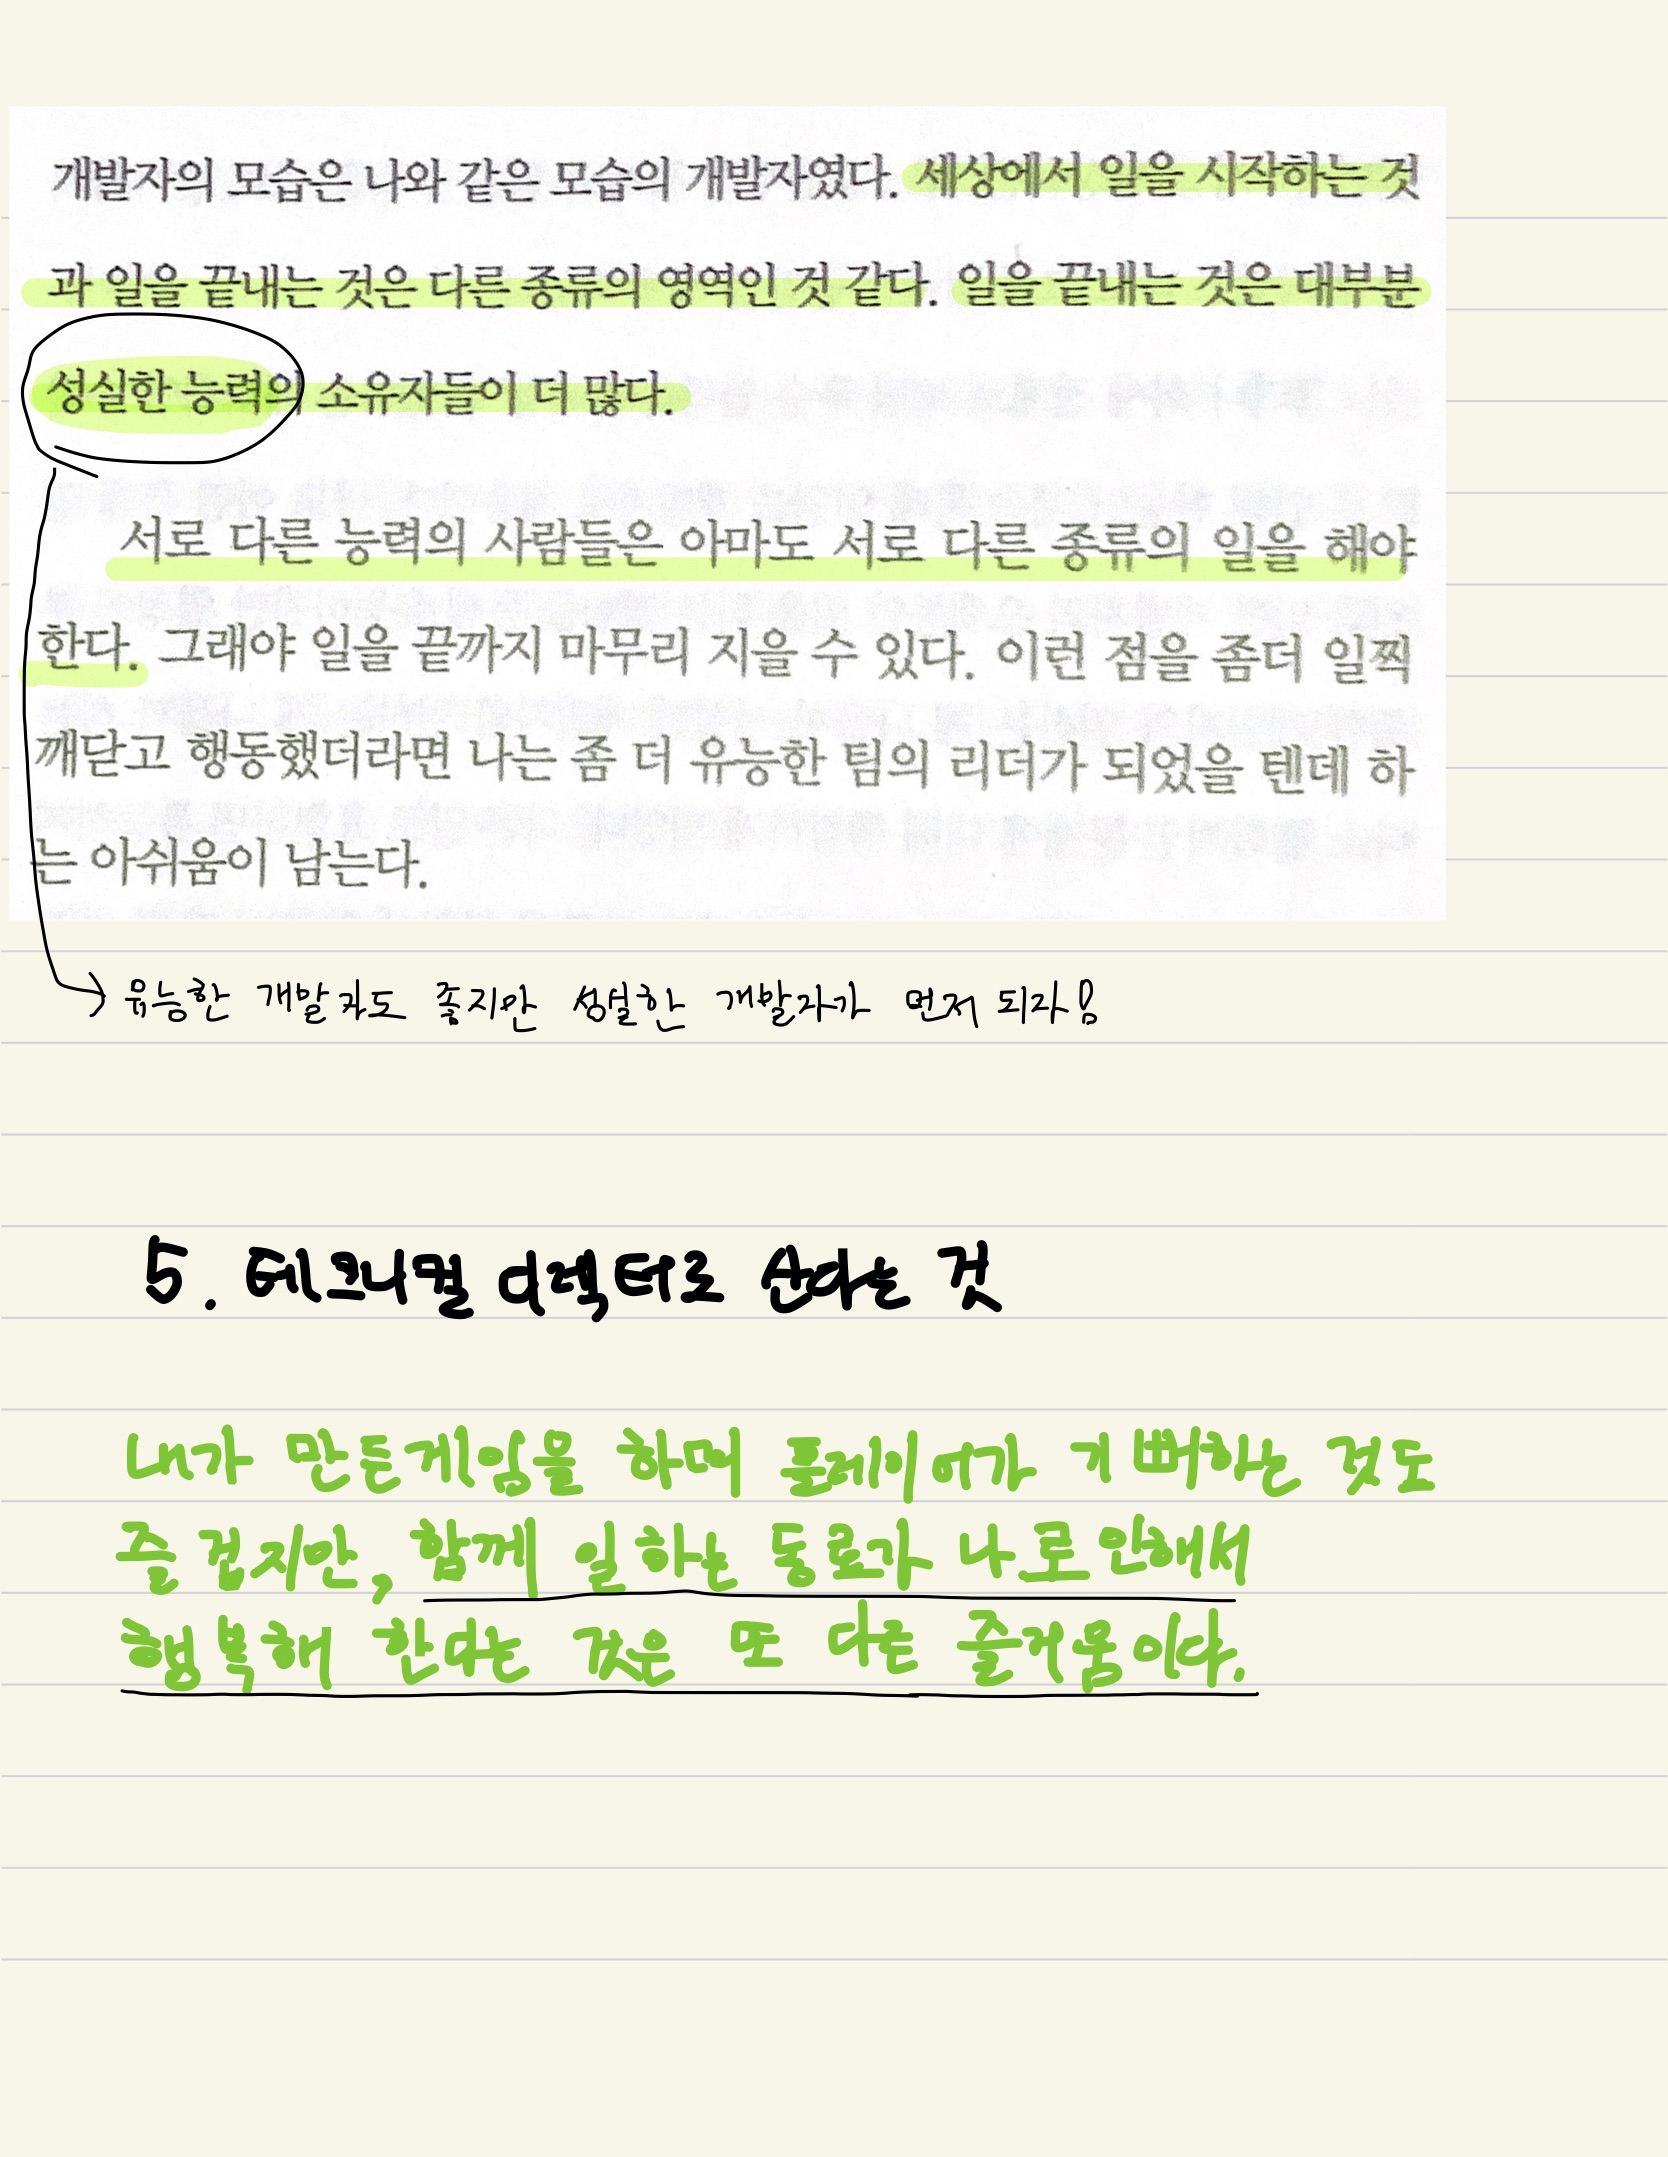 개발자의 모습은 나와 같은 모습의 개발자였다. 세상에서 일을 시작하는 것
과 일을 끝내는 것은 다른 종류의 영역인 것 같다. 일을 끝내는 것은 대부분
성실한 능력의 소유자들이 더 많다.
서로 다른 능력의 사람들은 아마도 서로 다른 종류의 일을 해야
한다. 그래야 일을 끝까지 마무리 지을 수 있다. 이런 점을 좀더 일찍
깨닫고 행동했더라면 나는 좀 더 유능한 팀의 리더가 되었을 텐데 하
는 아쉬움이 남는다.
→ 유능한 개발자도 좋지만 성실한 개발자가 먼저 되자!
5. 테크니컬 디렉터로 산다는 것
내가 만든게임을 하며 플레이어가 기뻐하는 것도
즐겁지만, 함께 일하는 동료가 나로 인해서
행복해 한다는 것은 또 다른 즐거움이다.